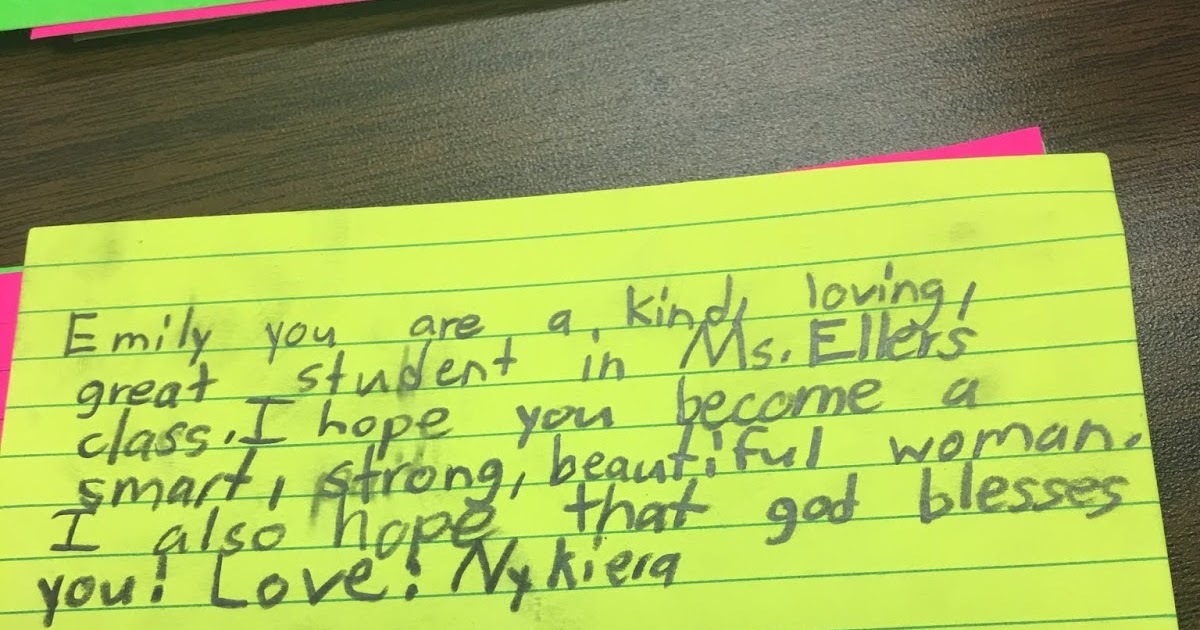 Emily you are a, kind, loving,
great student in Ms. Ellers
class. I hope you become a
smart, strong, beautiful woman.
I also hope that god blesses
you! Love! Nykiera